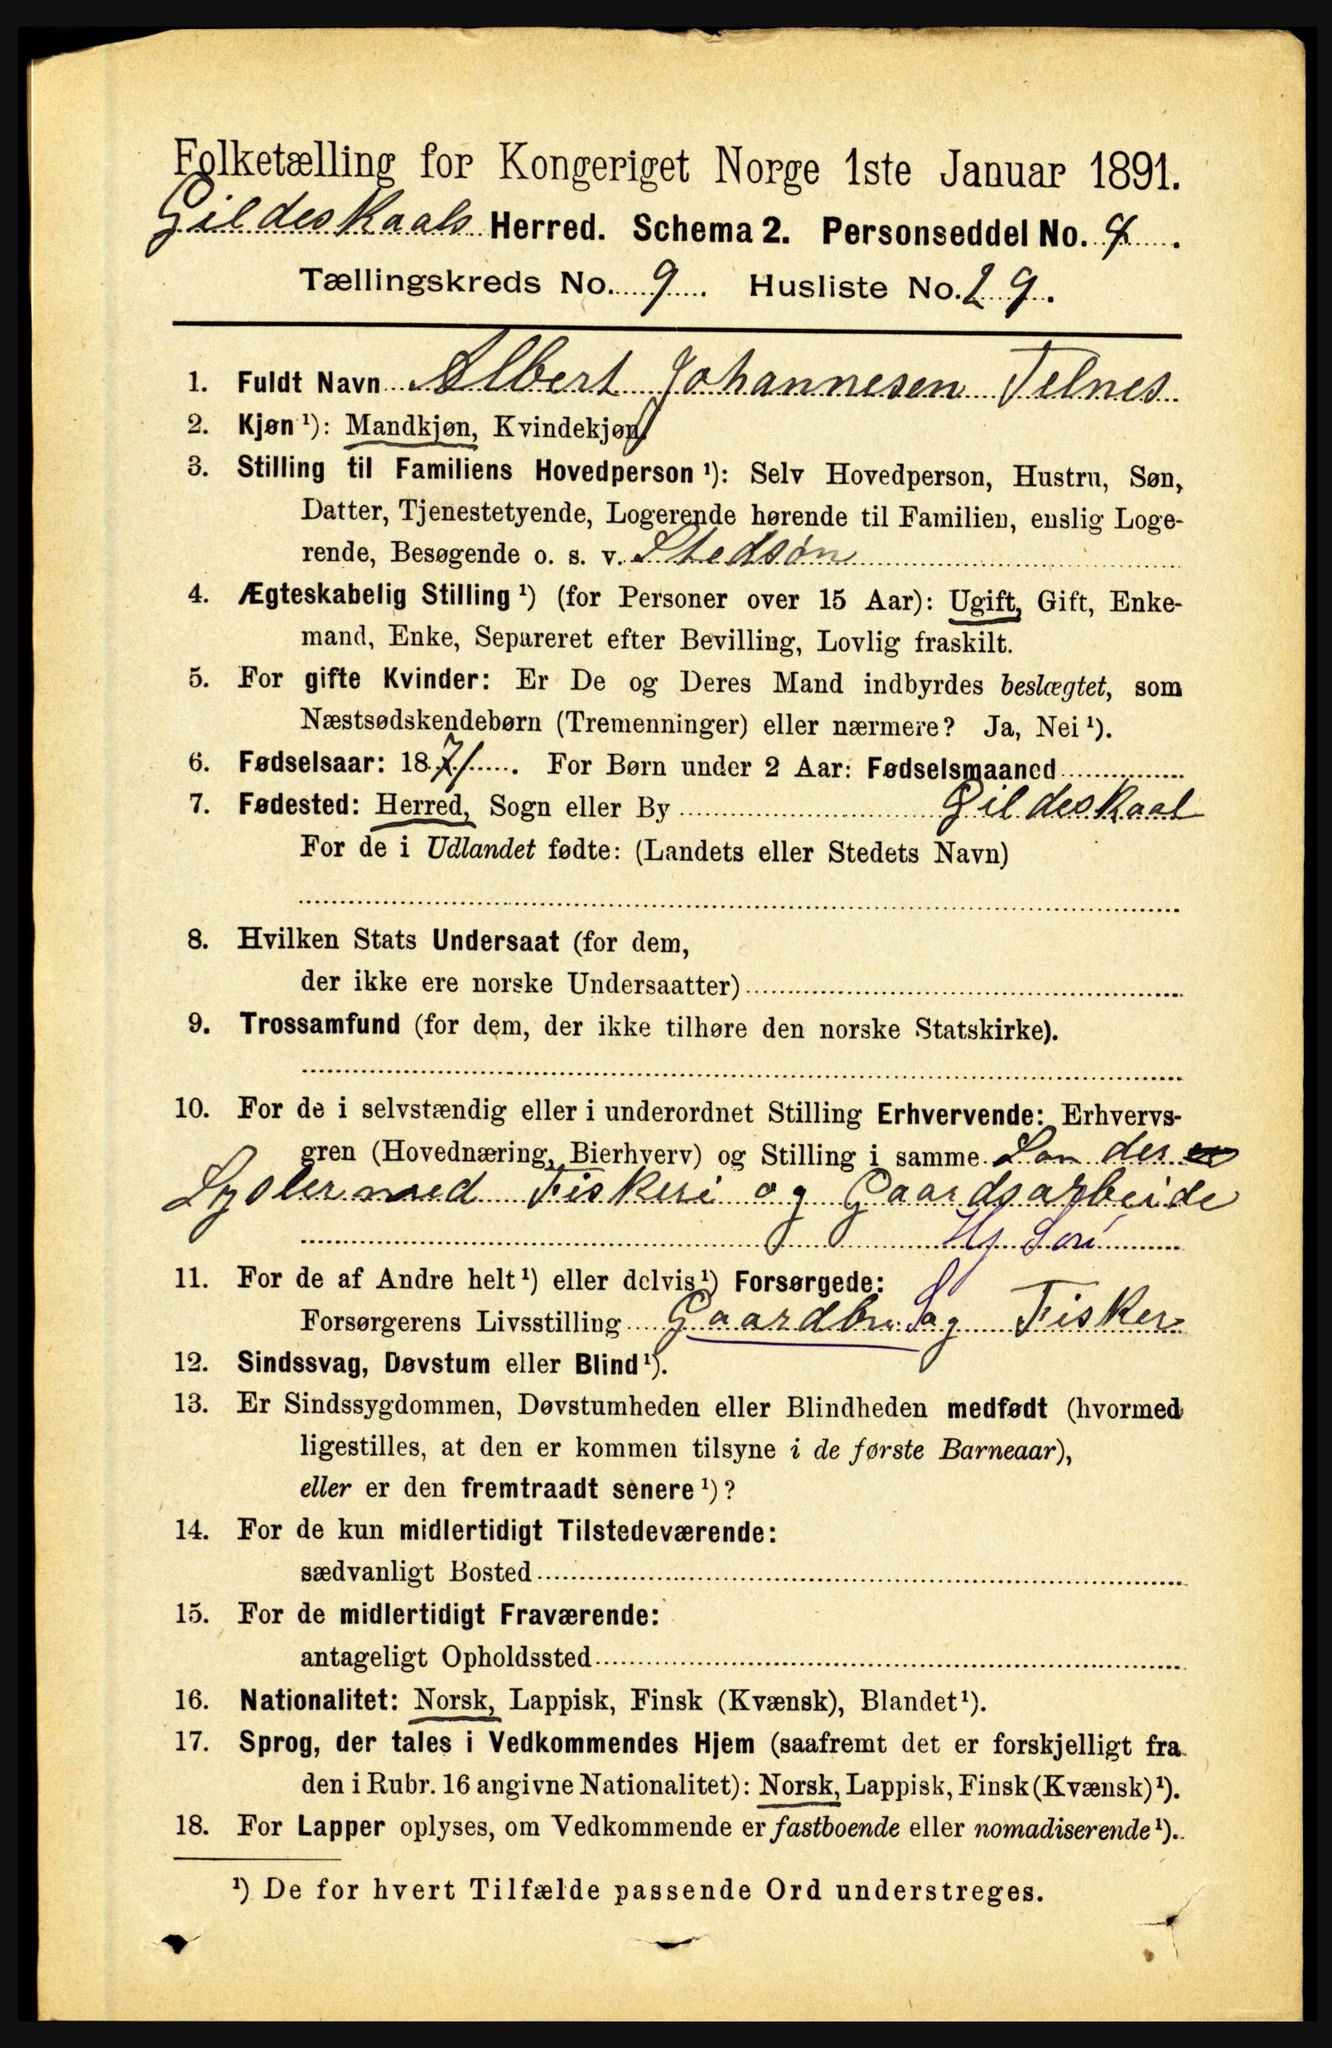 Folketælling for Kongeriget Norge 1ste Januar 1891.
Gildeskaals Herred. Schema 2. Personseddel No. 4.
Tællingskreds No. 9. Husliste No. 29.
1. Fuldt Navn Albert Johannesen Telnes
2. Kjøn ¹): Mandkjøn, Kvindekjøn
3. Stilling til Familiens Hovedperson ¹): Selv Hovedperson, Hustru, Søn,
Datter, Tjenestetyende, Logerende hørende til Familien, enslig Loge-
rende, Besøgende o. s. v. Stedsøn
4. Ægteskabelig Stilling ¹) (for Personer over 15 Aar): Ugift, Gift, Enke-
mand, Enke, Separeret efter Bevilling, Lovlig fraskilt.
5. For gifte Kvinder: Er De og Deres Mand indbyrdes beslægtet, som
Næstsødskendebørn (Tremenninger) eller nærmere? Ja, Nei ¹).
6. Fødselsaar: 1871. For Børn under 2 Aar: Fødselsmaaned
7. Fødested: Herred, Sogn eller By Gildeskaal
For de i Udlandet fødte: (Landets eller Stedets Navn)
8. Hvilken Stats Undersaat (for dem,
der ikke ere norske Undersaatter)
9. Trossamfund (for dem, der ikke tilhøre den norske Statskirke).
10. For de i selvstændig eller i underordnet Stilling Erhvervende: Erhvervs-
gren (Hovednæring, Bierhverv) og Stilling i samme Søn der
Sysler med Fiskeri og Gaardsarbeide
11. For de af Andre helt ¹) eller delvis ¹) Forsørgede:
Forsørgerens Livsstilling Gaardbr. og Fisker
12. Sindssvag, Døvstum eller Blind ¹).
13. Er Sindssygdommen, Døvstumheden eller Blindheden medfødt (hvormed
ligestilles, at den er kommen tilsyne i de første Barneaar),
eller er den fremtraadt senere ¹)?
14. For de kun midlertidigt Tilstedeværende:
sædvanligt Bosted
15. For de midlertidigt Fraværende:
antageligt Opholdssted
16. Nationalitet: Norsk, Lappisk, Finsk (Kvænsk), Blandet ¹).
17. Sprog, der tales i Vedkommendes Hjem (saafremt det er forskjelligt fra
den i Rubr. 16 angivne Nationalitet): Norsk, Lappisk, Finsk (Kvænsk) ¹).
18. For Lapper oplyses, om Vedkommende er fastboende eller nomadiserende ¹).
¹) De for hvert Tilfælde passende Ord understreges.